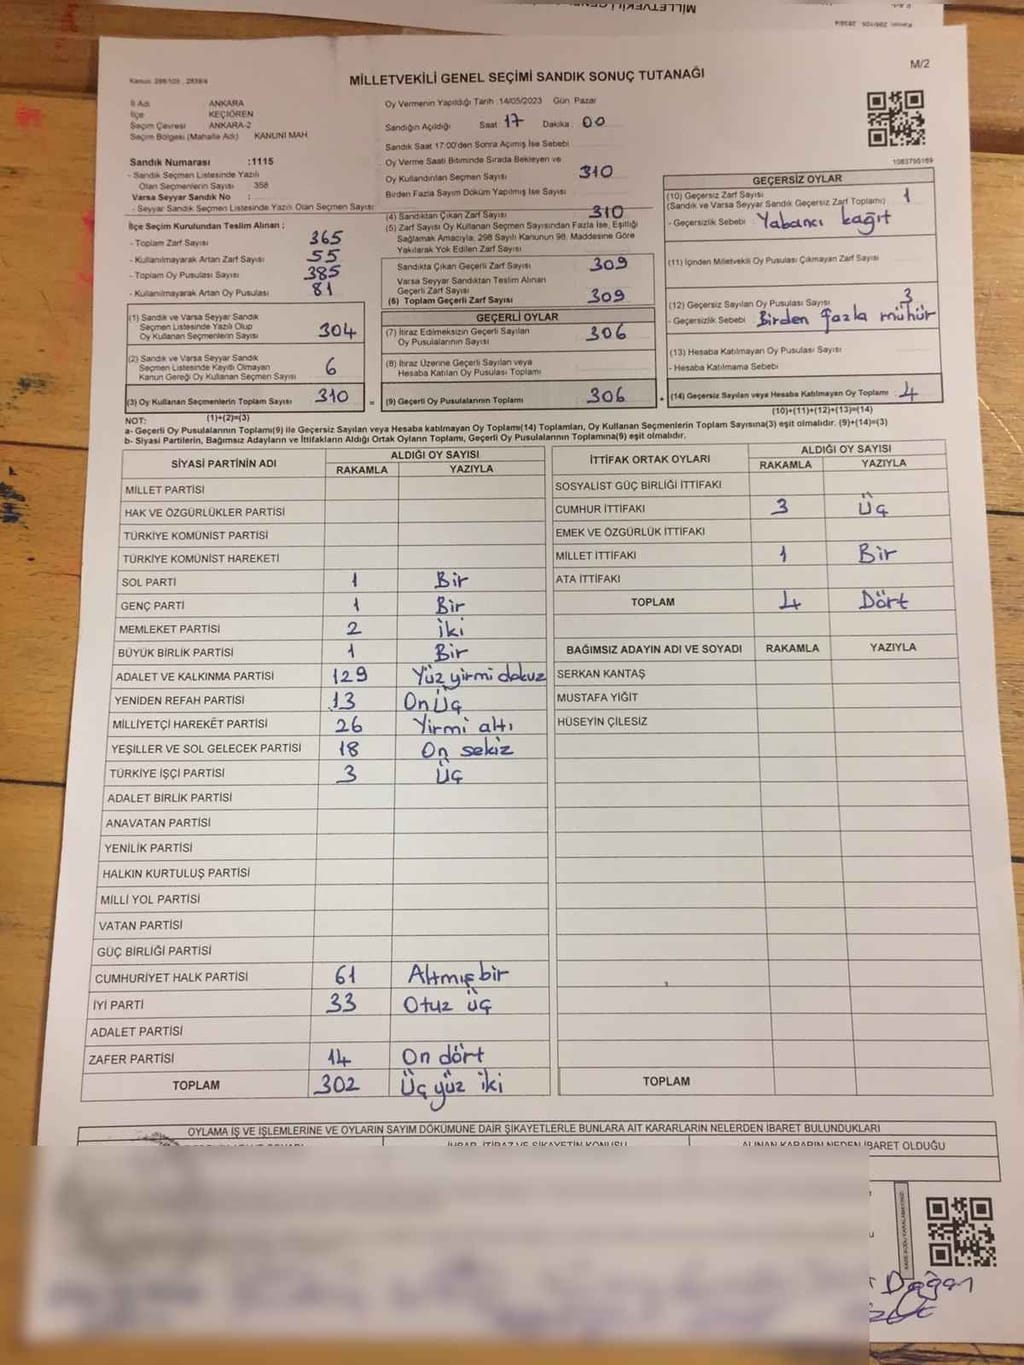 MİLLETVEKİLİ GENEL SEÇİMİ SANDIK SONUÇ TUTANAĞI
M/2
İl Adı ANKARA
İlçe KEÇİÖREN
Seçim Çevresi ANKARA-2
Seçim Bölgesi (Mahalle Adı) KANUNİ MAH
Sandık Numarası :1115
- Sandık Seçmen Listesinde Yazılı
Olan Seçmenlerin Sayısı 358
Varsa Seyyar Sandık No :
- Seyyar Sandık Seçmen Listesinde Yazılı Olan Seçmen Sayısı
Oy Vermenin Yapıldığı Tarih :14/05/2023 Gün Pazar
Sandığın Açıldığı Saat 17 Dakika 00
Sandık Saat 17:00'den Sonra Açımış İse Sebebi
Oy Verme Saati Bitiminde Sırada Bekleyen ve
Oy Kullandırılan Seçmen Sayısı 310
Birden Fazla Sayım Döküm Yapılmış İse Sayısı
1083795169
İlçe Seçim Kurulundan Teslim Alınan ;
- Toplam Zarf Sayısı 365
- Kullanılmayarak Artan Zarf Sayısı 55
- Toplam Oy Pusulası Sayısı 385
- Kullanılmayarak Artan Oy Pusulası 81
(1) Sandık ve Varsa Seyyar Sandık
Seçmen Listesinde Yazılı Olup
Oy Kullanan Seçmenlerin Sayısı 304
(2) Sandık ve Varsa Seyyar Sandık
Seçmen Listesinde Kayıtlı Olmayan
Kanun Gereği Oy Kullanan Seçmen Sayısı 6
(3) Oy Kullanan Seçmenlerin Toplam Sayısı 310
(1)+(2)=(3)
(4) Sandıktan Çıkan Zarf Sayısı 310
(5) Zarf Sayısı Oy Kullanan Seçmen Sayısından Fazla İse, Eşitliği
Sağlamak Amacıyla, 298 Sayılı Kanunun 98. Maddesine Göre
Yakılarak Yok Edilen Zarf Sayısı
Sandıkta Çıkan Geçerli Zarf Sayısı 309
Varsa Seyyar Sandıktan Teslim Alınan
Geçerli Zarf Sayısı
(6) Toplam Geçerli Zarf Sayısı 309
GEÇERLİ OYLAR
(7) İtiraz Edilmeksizin Geçerli Sayılan
Oy Pusulalarının Sayısı 306
(8) İtiraz Üzerine Geçerli Sayılan veya
Hesaba Katılan Oy Pusulası Toplamı
= (9) Geçerli Oy Pusulalarının Toplamı 306
GEÇERSİZ OYLAR
(10) Geçersiz Zarf Sayısı 1
(Sandık ve Varsa Seyyar Sandık Geçersiz Zarf Toplamı)
- Geçersizlik Sebebi Yabancı kağıt
(11) İçinden Milletvekili Oy Pusulası Çıkmayan Zarf Sayısı
(12) Geçersiz Sayılan Oy Pusulası Sayısı 3
- Geçersizlik Sebebi Birden fazla mühür
(13) Hesaba Katılmayan Oy Pusulası Sayısı
- Hesaba Katılmama Sebebi
+ (14) Geçersiz Sayılan veya Hesaba Katılmayan Oy Toplamı 4
(10)+(11)+(12)+(13)=(14)
NOT:
a- Geçerli Oy Pusulalarının Toplamı(9) ile Geçersiz Sayılan veya Hesaba katılmayan Oy Toplamı(14) Toplamları, Oy Kullanan Seçmenlerin Toplam Sayısına(3) eşit olmalıdır. (9)+(14)=(3)
b- Siyasi Partilerin, Bağımsız Adayların ve İttifakların Aldığı Ortak Oyların Toplamı, Geçerli Oy Pusulalarının Toplamına(9) eşit olmalıdır.
SİYASİ PARTİNİN ADI ALDIĞI OY SAYISI
RAKAMLA YAZIYLA
MİLLET PARTİSİ
HAK VE ÖZGÜRLÜKLER PARTİSİ
TÜRKİYE KOMÜNİST PARTİSİ
TÜRKİYE KOMÜNİST HAREKETİ
SOL PARTİ 1 Bir
GENÇ PARTİ 1 Bir
MEMLEKET PARTİSİ 2 İki
BÜYÜK BİRLİK PARTİSİ 1 Bir
ADALET VE KALKINMA PARTİSİ 129 Yüz yirmi dokuz
YENİDEN REFAH PARTİSİ 13 On Üç
MİLLİYETÇİ HAREKET PARTİSİ 26 Yirmi altı
YEŞİLLER VE SOL GELECEK PARTİSİ 18 On sekiz
TÜRKİYE İŞÇİ PARTİSİ 3 Üç
ADALET BİRLİK PARTİSİ
ANAVATAN PARTİSİ
YENİLİK PARTİSİ
HALKIN KURTULUŞ PARTİSİ
MİLLİ YOL PARTİSİ
VATAN PARTİSİ
GÜÇ BİRLİĞİ PARTİSİ
CUMHURİYET HALK PARTİSİ 61 Altmış bir
İYİ PARTİ 33 Otuz üç
ADALET PARTİSİ
ZAFER PARTİSİ 14 On dört
TOPLAM 302 Üç yüz iki
İTTİFAK ORTAK OYLARI ALDIĞI OY SAYISI
RAKAMLA YAZIYLA
SOSYALİST GÜÇ BİRLİĞİ İTTİFAKI
CUMHUR İTTİFAKI 3 Üç
EMEK VE ÖZGÜRLÜK İTTİFAKI
MİLLET İTTİFAKI 1 Bir
ATA İTTİFAKI
TOPLAM 4 Dört
BAĞIMSIZ ADAYIN ADI VE SOYADI RAKAMLA YAZIYLA
SERKAN KANTAŞ
MUSTAFA YİĞİT
HÜSEYİN ÇİLESİZ
TOPLAM
OYLAMA İŞ VE İŞLEMLERİNE VE OYLARIN SAYIM DÖKÜMÜNE DAİR ŞİKAYETLERLE BUNLARA AİT KARARLARIN NELERDEN İBARET BULUNDUKLARI
İHBAR, İTİRAZ VE ŞİKAYETİN KONUSU ALINAN KARARIN NEDEN İBARET OLDUĞU
Doğan